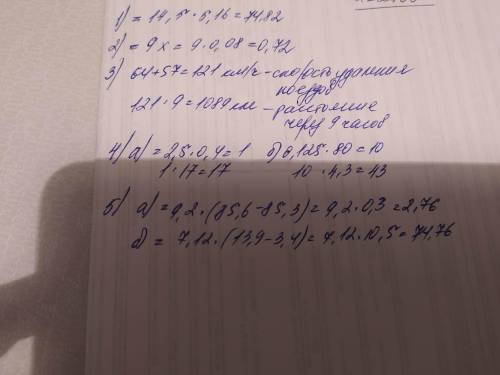 1) = 14,5 · 5,16 = 74,82
2) = 9x = 9 · 0,08 = 0,72
3) 64+57=121 км/ч - скорость удаления
поездов
121 · 9 = 1089 км - растояние
через 9 часов
4) а) = 2,5 · 0,4 = 1 б) 0,125 · 80 = 10
1 · 17 = 17 10 · 4,3 = 43
5) а) = 9,2 · (85,6-85,3) = 9,2 · 0,3 = 2,76
б) = 7,12 · (13,9-3,4) = 7,12 · 10,5 = 74,76